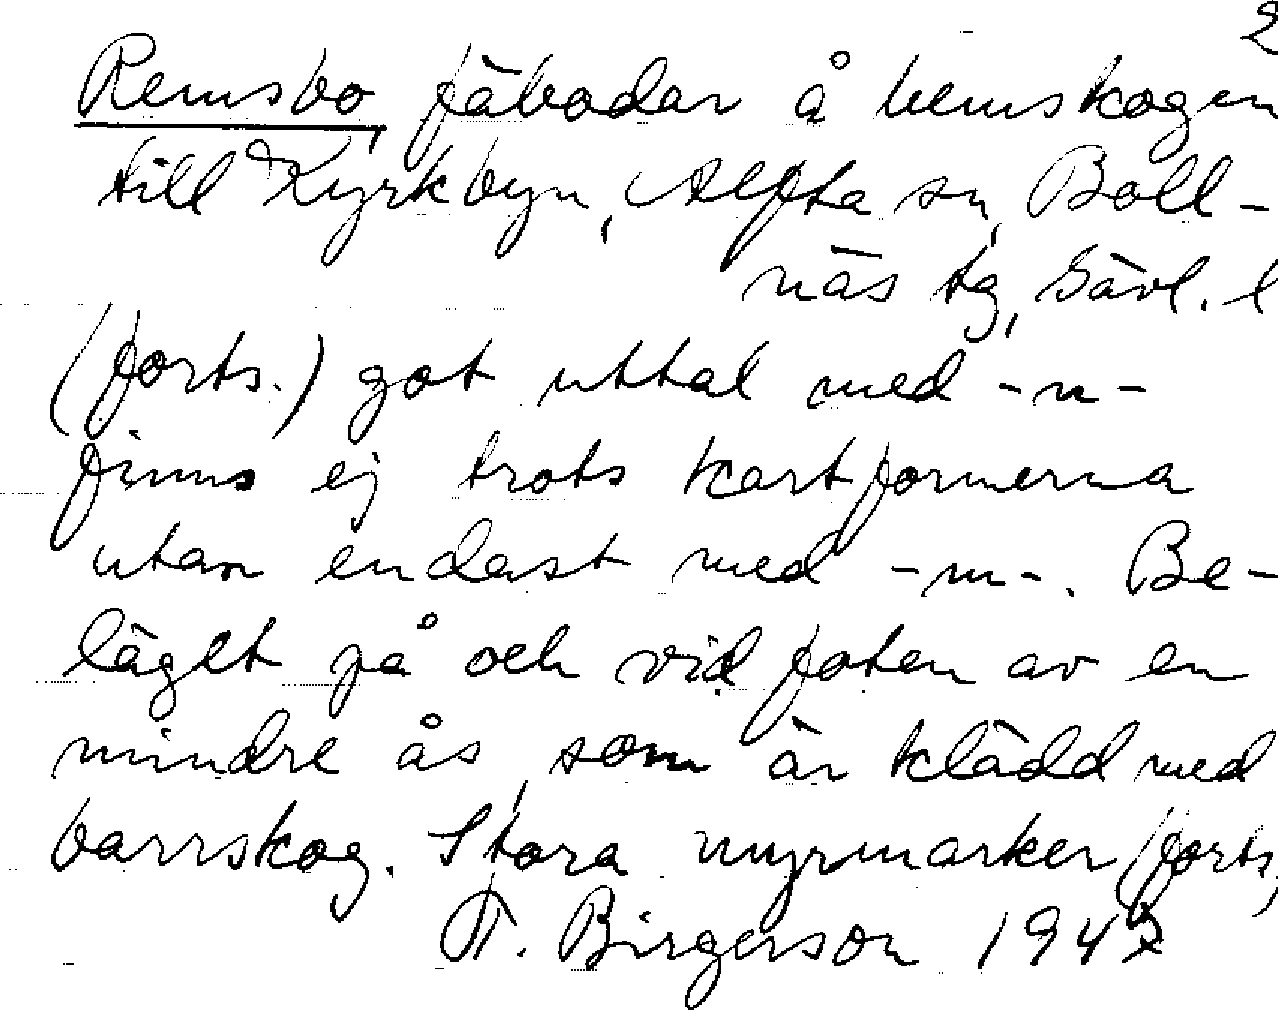 2
Remsbo, fäbodar å hemskogen
till Kyrkbyn, Alfta sn, Boll-
näs tg, Gävl. l
(forts.) got uttal med -n-
finns ej trots kartformerna
utan endast med -m-. Be-
läget på och vid foten av en
mindre ås, som är klädd med
barrskog. Stora myrmarker (forts,
T. Birgerson 1947